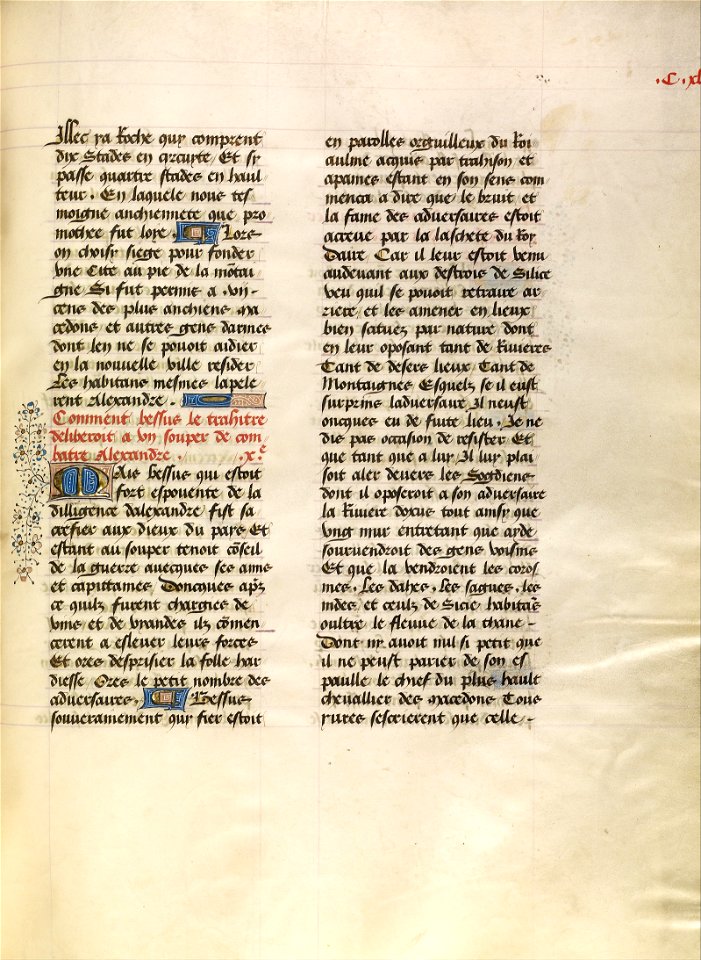 .C.xl
Illec ya Roche quy comprent
dix Stades en circuite / Et sy
passe quattre stades en haul
teur. En laquele nous tes
moigne anchiennete que pro
mothee fut loye. Lors
on choisy siege pour fonder
vne Cite au pie de la mõtai
gne Si fut permis a .vii.
cens des plus anchiens ma
cedons et autres gens darmes
dont len ne se pouoit aidier
en la nouuelle ville resider
Les habitans mesmes lapele
rent Alexandre.
Comment bessus le trahitre
deliberoit a vn souper de com
batre Alexandre. .x.e
Mais bessus qui estoit
fort espouente de la
dilligence dalexandre fist sa
crefier aux dieux du pays Et
estant au souper tenoit cõseil
de la guerre auecques ses amis
et capittaines Doncques apz
ce quilz furent chargies de
vins et de viandes ilz cõmen
cerent a esleuer leurs forces
Et ores desprisier la folle har
diesse Ores le petit nombre des
aduersaires. Bessus
souuerainement quy fier estoit
en parolles orguilleux du Roi
aulme acquis par trahison et
apaines estant en son sens com
menca a dire que le bruit et
la fame des aduersaires estoit
acreue par la laschete du Roy
Daire Car il leur estoit venu
audeuant aux destrois de Silice
veu quil se pouoit retraire ar
riere / et les amener en lieux
bien saturez par nature dont
en leur oposant tant de Riuieres
Tant de desers lieux / Tant de
Montaignes Esquelz se il eust
surprins laduersaire Il neust
oncques eu de fuite lieu. Je ne
dis pas occasion de resister Et
que tant que a luy Il luy plai
soit aler deuers les Sogdiens
dont il oposeroit a son aduersaire
la Riuiere doxus tout ainsy que
vng mur entretant que ayde
souruendroit des gens voisins
Et que la vendroient les coros
mes. Les dahes. Les sagues. les
indes et ceulz de Sicie habitãs
oultre le fleuue de la thane
Dont ny auoit nul si petit que
il ne peust parier de son es
paulle le chief du plus hault
cheuallier des macedons Tous
yures sescrierent que celle